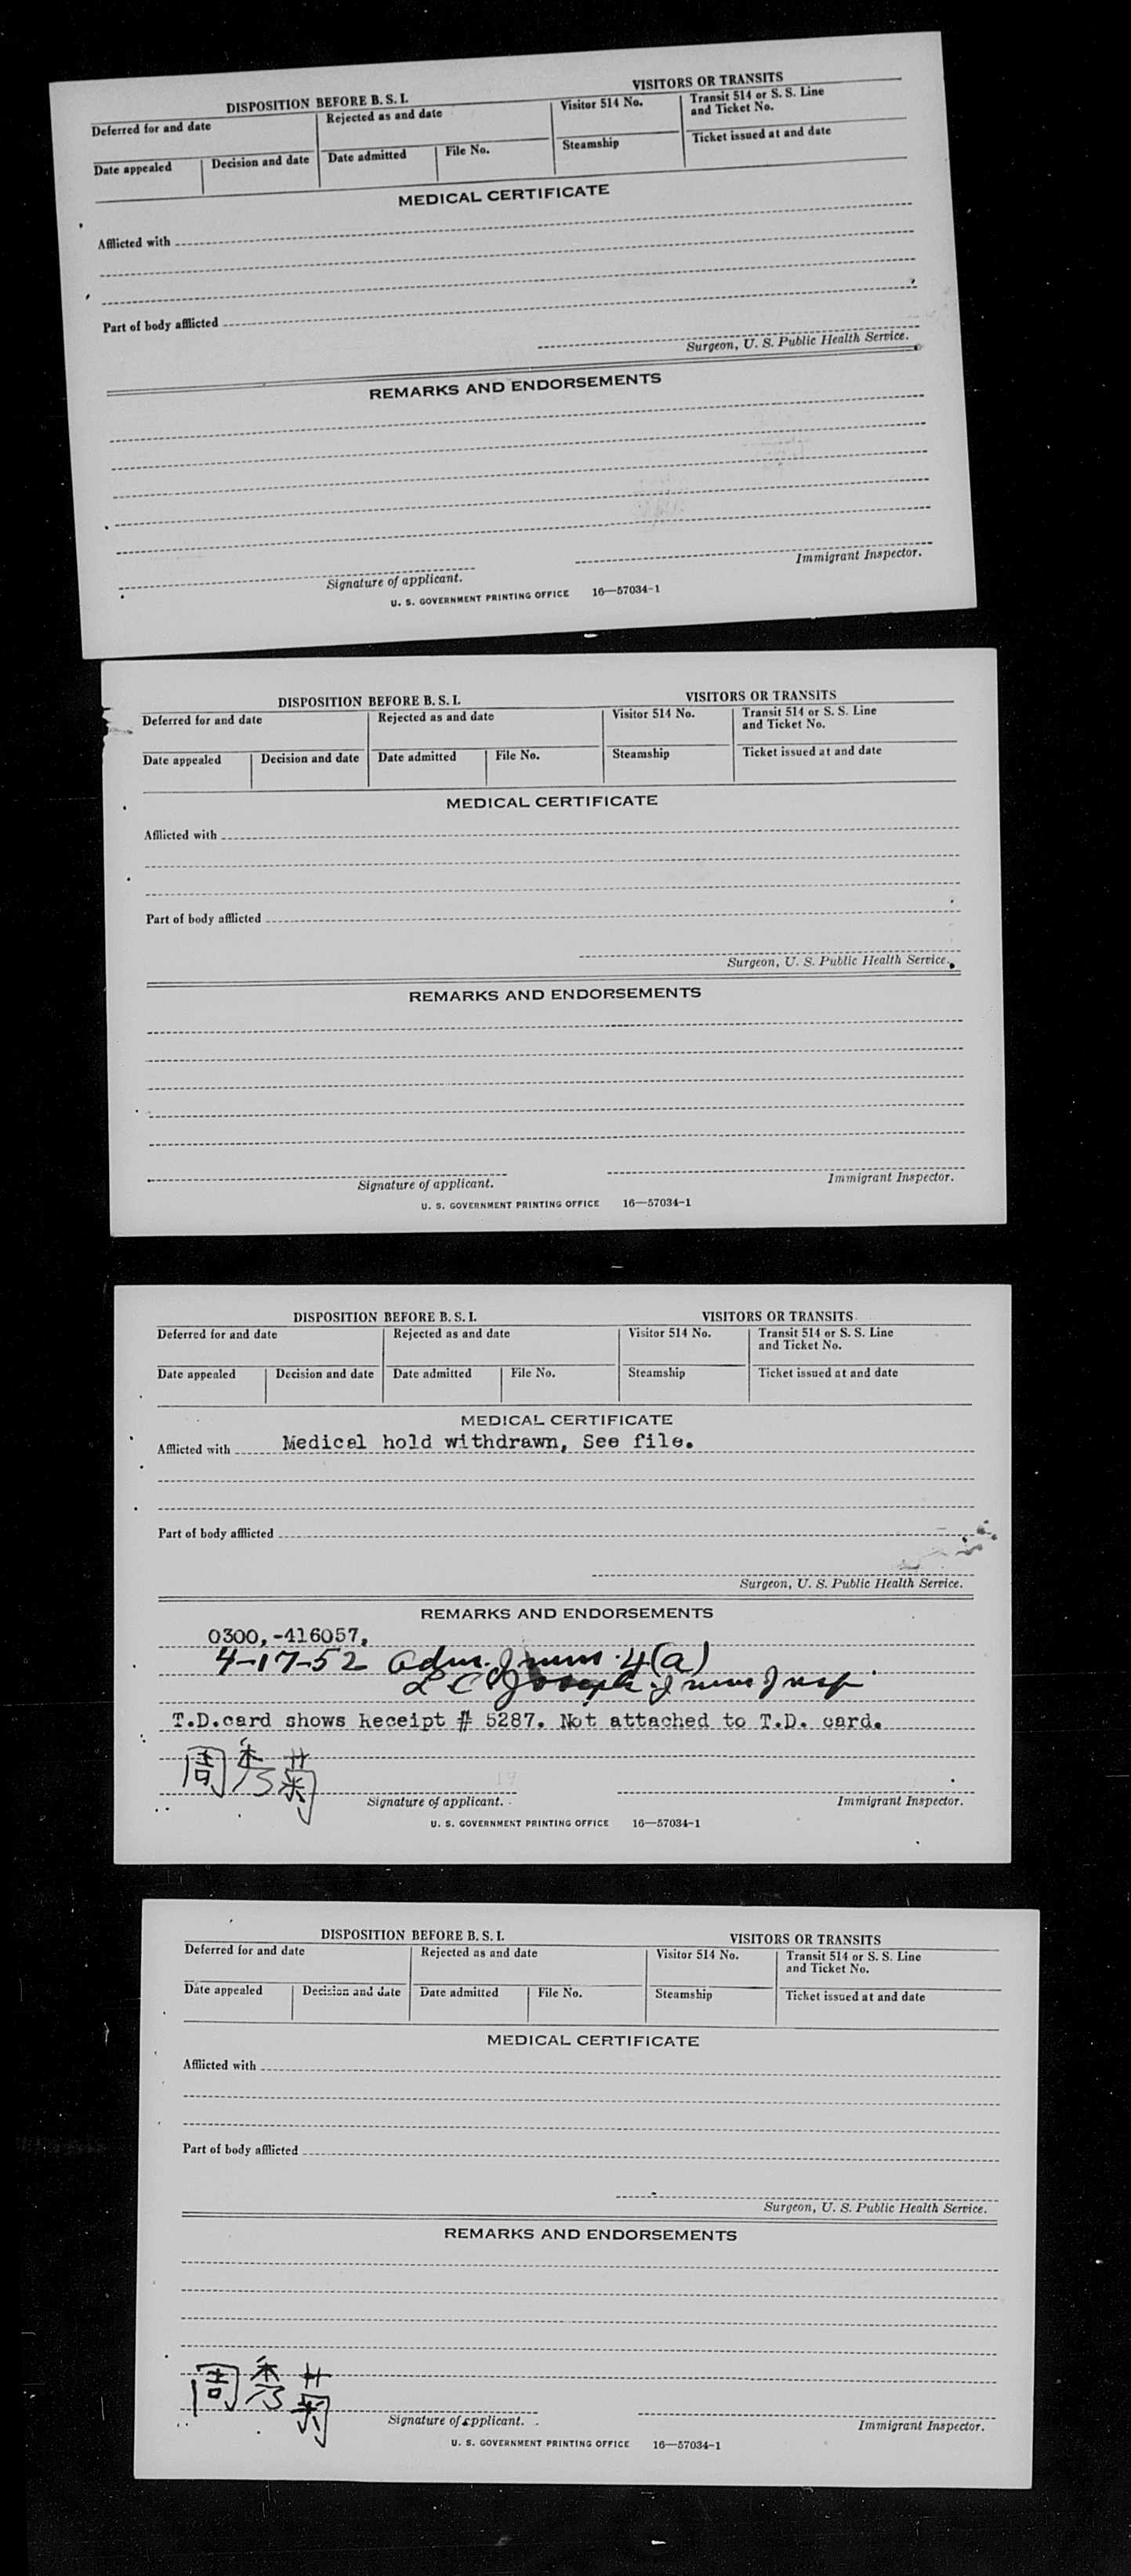 DISPOSITION BEFORE B. S. I.
VISITORS OR TRANSITS
Deferred for and date
Rejected as and date
Visitor 514 No.
Transit 514 or S. S. Line
and Ticket No.
Date appealed
Decision and date
Date admitted
File No.
Steamship
Ticket issued at and date
MEDICAL CERTIFICATE
Afflicted with
Part of body afflicted
Surgeon, U. S. Public Health Service.
REMARKS AND ENDORSEMENTS
Signature of applicant.
Immigrant Inspector.
U. S. GOVERNMENT PRINTING OFFICE 16—57034-1
DISPOSITION BEFORE B. S. I.
VISITORS OR TRANSITS
Deferred for and date
Rejected as and date
Visitor 514 No.
Transit 514 or S. S. Line
and Ticket No.
Date appealed
Decision and date
Date admitted
File No.
Steamship
Ticket issued at and date
MEDICAL CERTIFICATE
Afflicted with
Part of body afflicted
Surgeon, U. S. Public Health Service.
REMARKS AND ENDORSEMENTS
Signature of applicant.
Immigrant Inspector.
U. S. GOVERNMENT PRINTING OFFICE 16—57034-1
DISPOSITION BEFORE B. S. I.
VISITORS OR TRANSITS
Deferred for and date
Rejected as and date
Visitor 514 No.
Transit 514 or S. S. Line
and Ticket No.
Date appealed
Decision and date
Date admitted
File No.
Steamship
Ticket issued at and date
MEDICAL CERTIFICATE
Afflicted with Medical hold withdrawn, See file.
Part of body afflicted
Surgeon, U. S. Public Health Service.
REMARKS AND ENDORSEMENTS
0300,-416057,
4-17-52 Adm. Imm. 4(a)
L C Joseph Imm Insp
T.D.card shows Receipt # 5287. Not attached to T.D. card.
周秀菊
Signature of applicant.
Immigrant Inspector.
U. S. GOVERNMENT PRINTING OFFICE 16—57034-1
DISPOSITION BEFORE B. S. I.
VISITORS OR TRANSITS
Deferred for and date
Rejected as and date
Visitor 514 No.
Transit 514 or S. S. Line
and Ticket No.
Date appealed
Decision and date
Date admitted
File No.
Steamship
Ticket issued at and date
MEDICAL CERTIFICATE
Afflicted with
Part of body afflicted
Surgeon, U. S. Public Health Service.
REMARKS AND ENDORSEMENTS
周秀菊
Signature of applicant.
Immigrant Inspector.
U. S. GOVERNMENT PRINTING OFFICE 16—57034-1